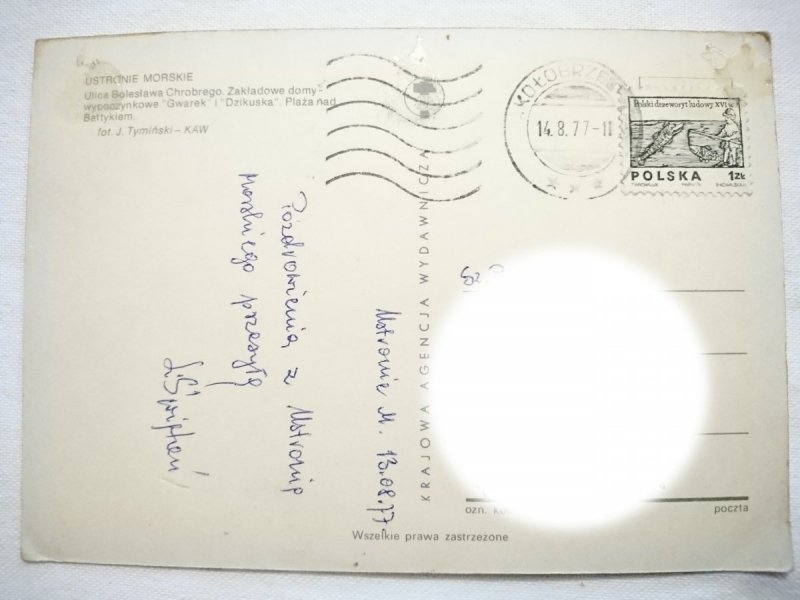 USTRONIE MORSKIE
Ulica Bolesława Chrobrego. Zakładowe domy
wypoczynkowe "Gwarek" i "Dzikuska". Plaża nad
Bałtykiem.
fot. J. Tymiński – KAW
KOŁOBRZEG
14.8.77-11
Polski drzeworyt ludowy XVI w.
POLSKA 1ZŁ
KRAJOWA AGENCJA WYDAWNICZA
Ustronie M. 13.08.77
Pozdrowienia z Ustronia
Morskiego przesyła
Sz. P.
ozn. poczta
Wszelkie prawa zastrzeżone